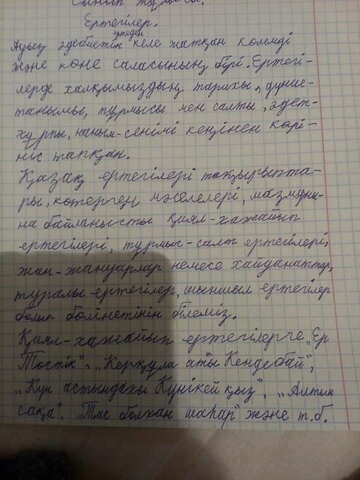 Сынып жұмысы.
Ертегілер.
ертеден
Ауыз әдебиетін келе жатқан көлемді
және көне саласының бірі. Ертегі-
лерде халқымыздың тарихы, дүние-
танымы, тұрмысы мен салты, әдет-
ғұрпы, наным-сенімі кеңінен көрі-
ніс тапқан.
Қазақ ертегілері тақырыпта-
ры, көтерген мәселелері, мазмұны-
на байланысты қиял-ғажайып
ертегілері, тұрмыс-салт ертегілері,
жан-жануарлар немесе хайуанаттар
туралы ертегілер, шыншыл ертегілер
болып бөлінетінін білеміз.
Қиял-ғажайып ертегілерге „Ер
Төстік", „Керқұла атты Кендебай",
„Күн астындағы Күнікей қыз", „Алтын
сақа". Тас болған шаһар" және т.б.